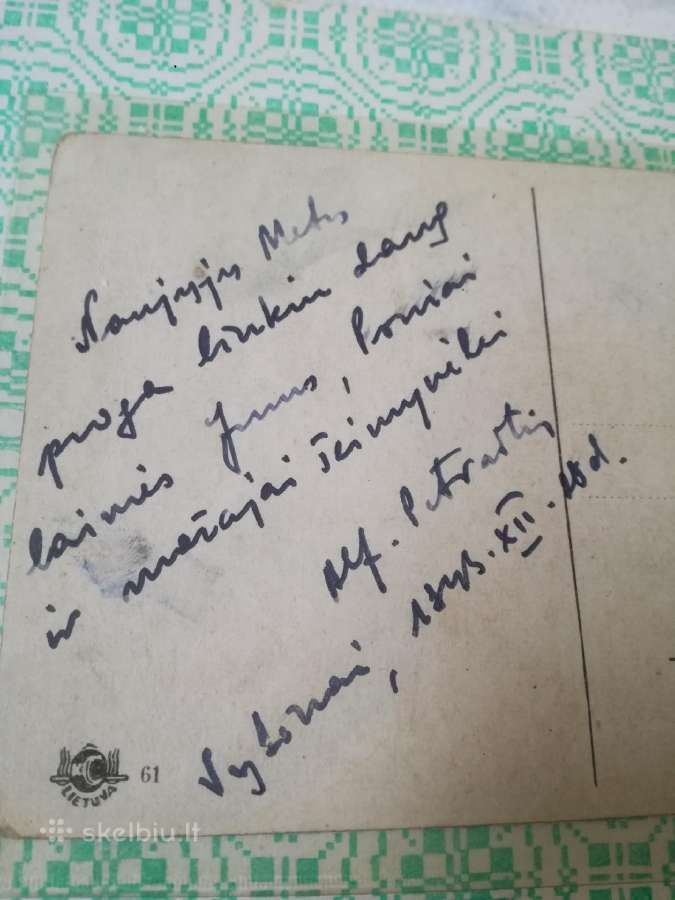 Naujųjų Metų
proga linkiu daug
laimės Jums, Poniai
ir mažajai šeimynikei
Alf. Petraitis
1943.XII.28d.
LIETUVA
61
skelbiu.lt